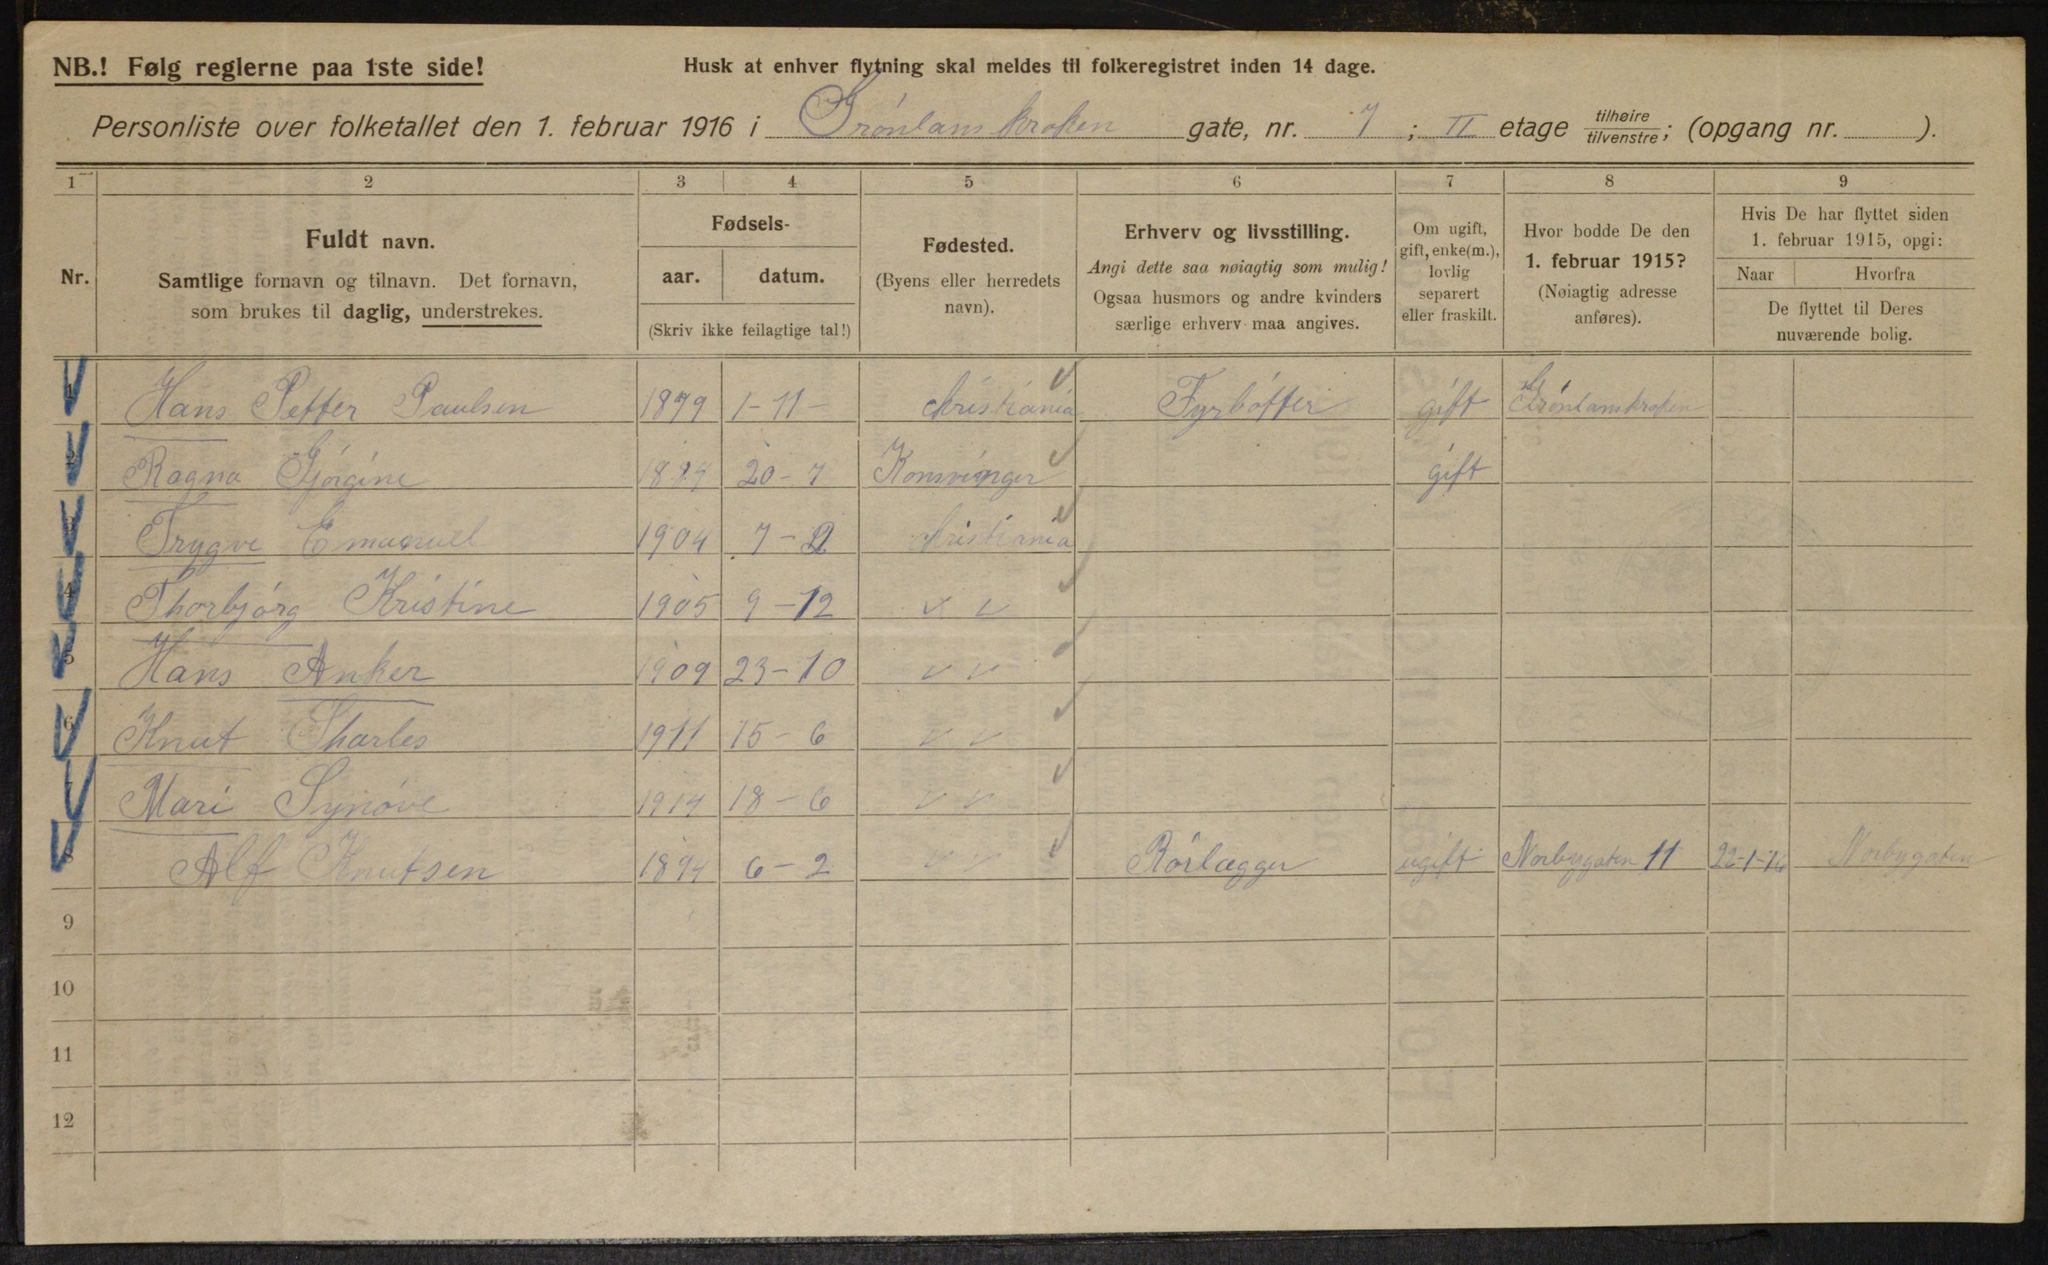 NB.! Følg reglerne paa 1ste side!
Husk at enhver flytning skal meldes til folkeregistret inden 14 dage.
Personliste over folketallet den 1. februar 1916 i Grønlanskroken gate, nr. 7 ; II etage tilhøire/tilvenstre; (opgang nr. ).
1 2 3 4 5 6 7 8 9
Nr.
Fuldt navn.
Samtlige fornavn og tilnavn. Det fornavn,
som brukes til daglig, understrekes.
Fødsels-
aar. datum.
(Skriv ikke feilagtige tal!)
Fødested.
(Byens eller herredets
navn).
Erhverv og livsstilling.
Angi dette saa nøiagtig som mulig!
Ogsaa husmors og andre kvinders
særlige erhverv maa angives.
Om ugift,
gift, enke(m.),
lovlig
separert
eller fraskilt.
Hvor bodde De den
1. februar 1915?
(Nøiagtig adresse
anføres).
Hvis De har flyttet siden
1. februar 1915, opgi:
Naar Hvorfra
De flyttet til Deres
nuværende bolig.
1 Hans Petter Paulsen 1879 1-11- Kristiania Fyrbøtter gift Grønlanskroken
2 Ragna Gjørgine 20-7 Konsvinger gift
3 Trygve Emanuel 1904 7-2 Kristiania
4 Thorbjørg Kristine 1905 9-12 v v
5 Hans Anker 1909 23-10 v v
6 Knut Tharles 1911 15-6 v v
7 Mari Synøve 1914 18-6 v v
8 Alf Knutsen 1894 6-2 v v Rørlægger ugift Norbygaten 11 22-1-16 Norbygaten
9
10
11
12